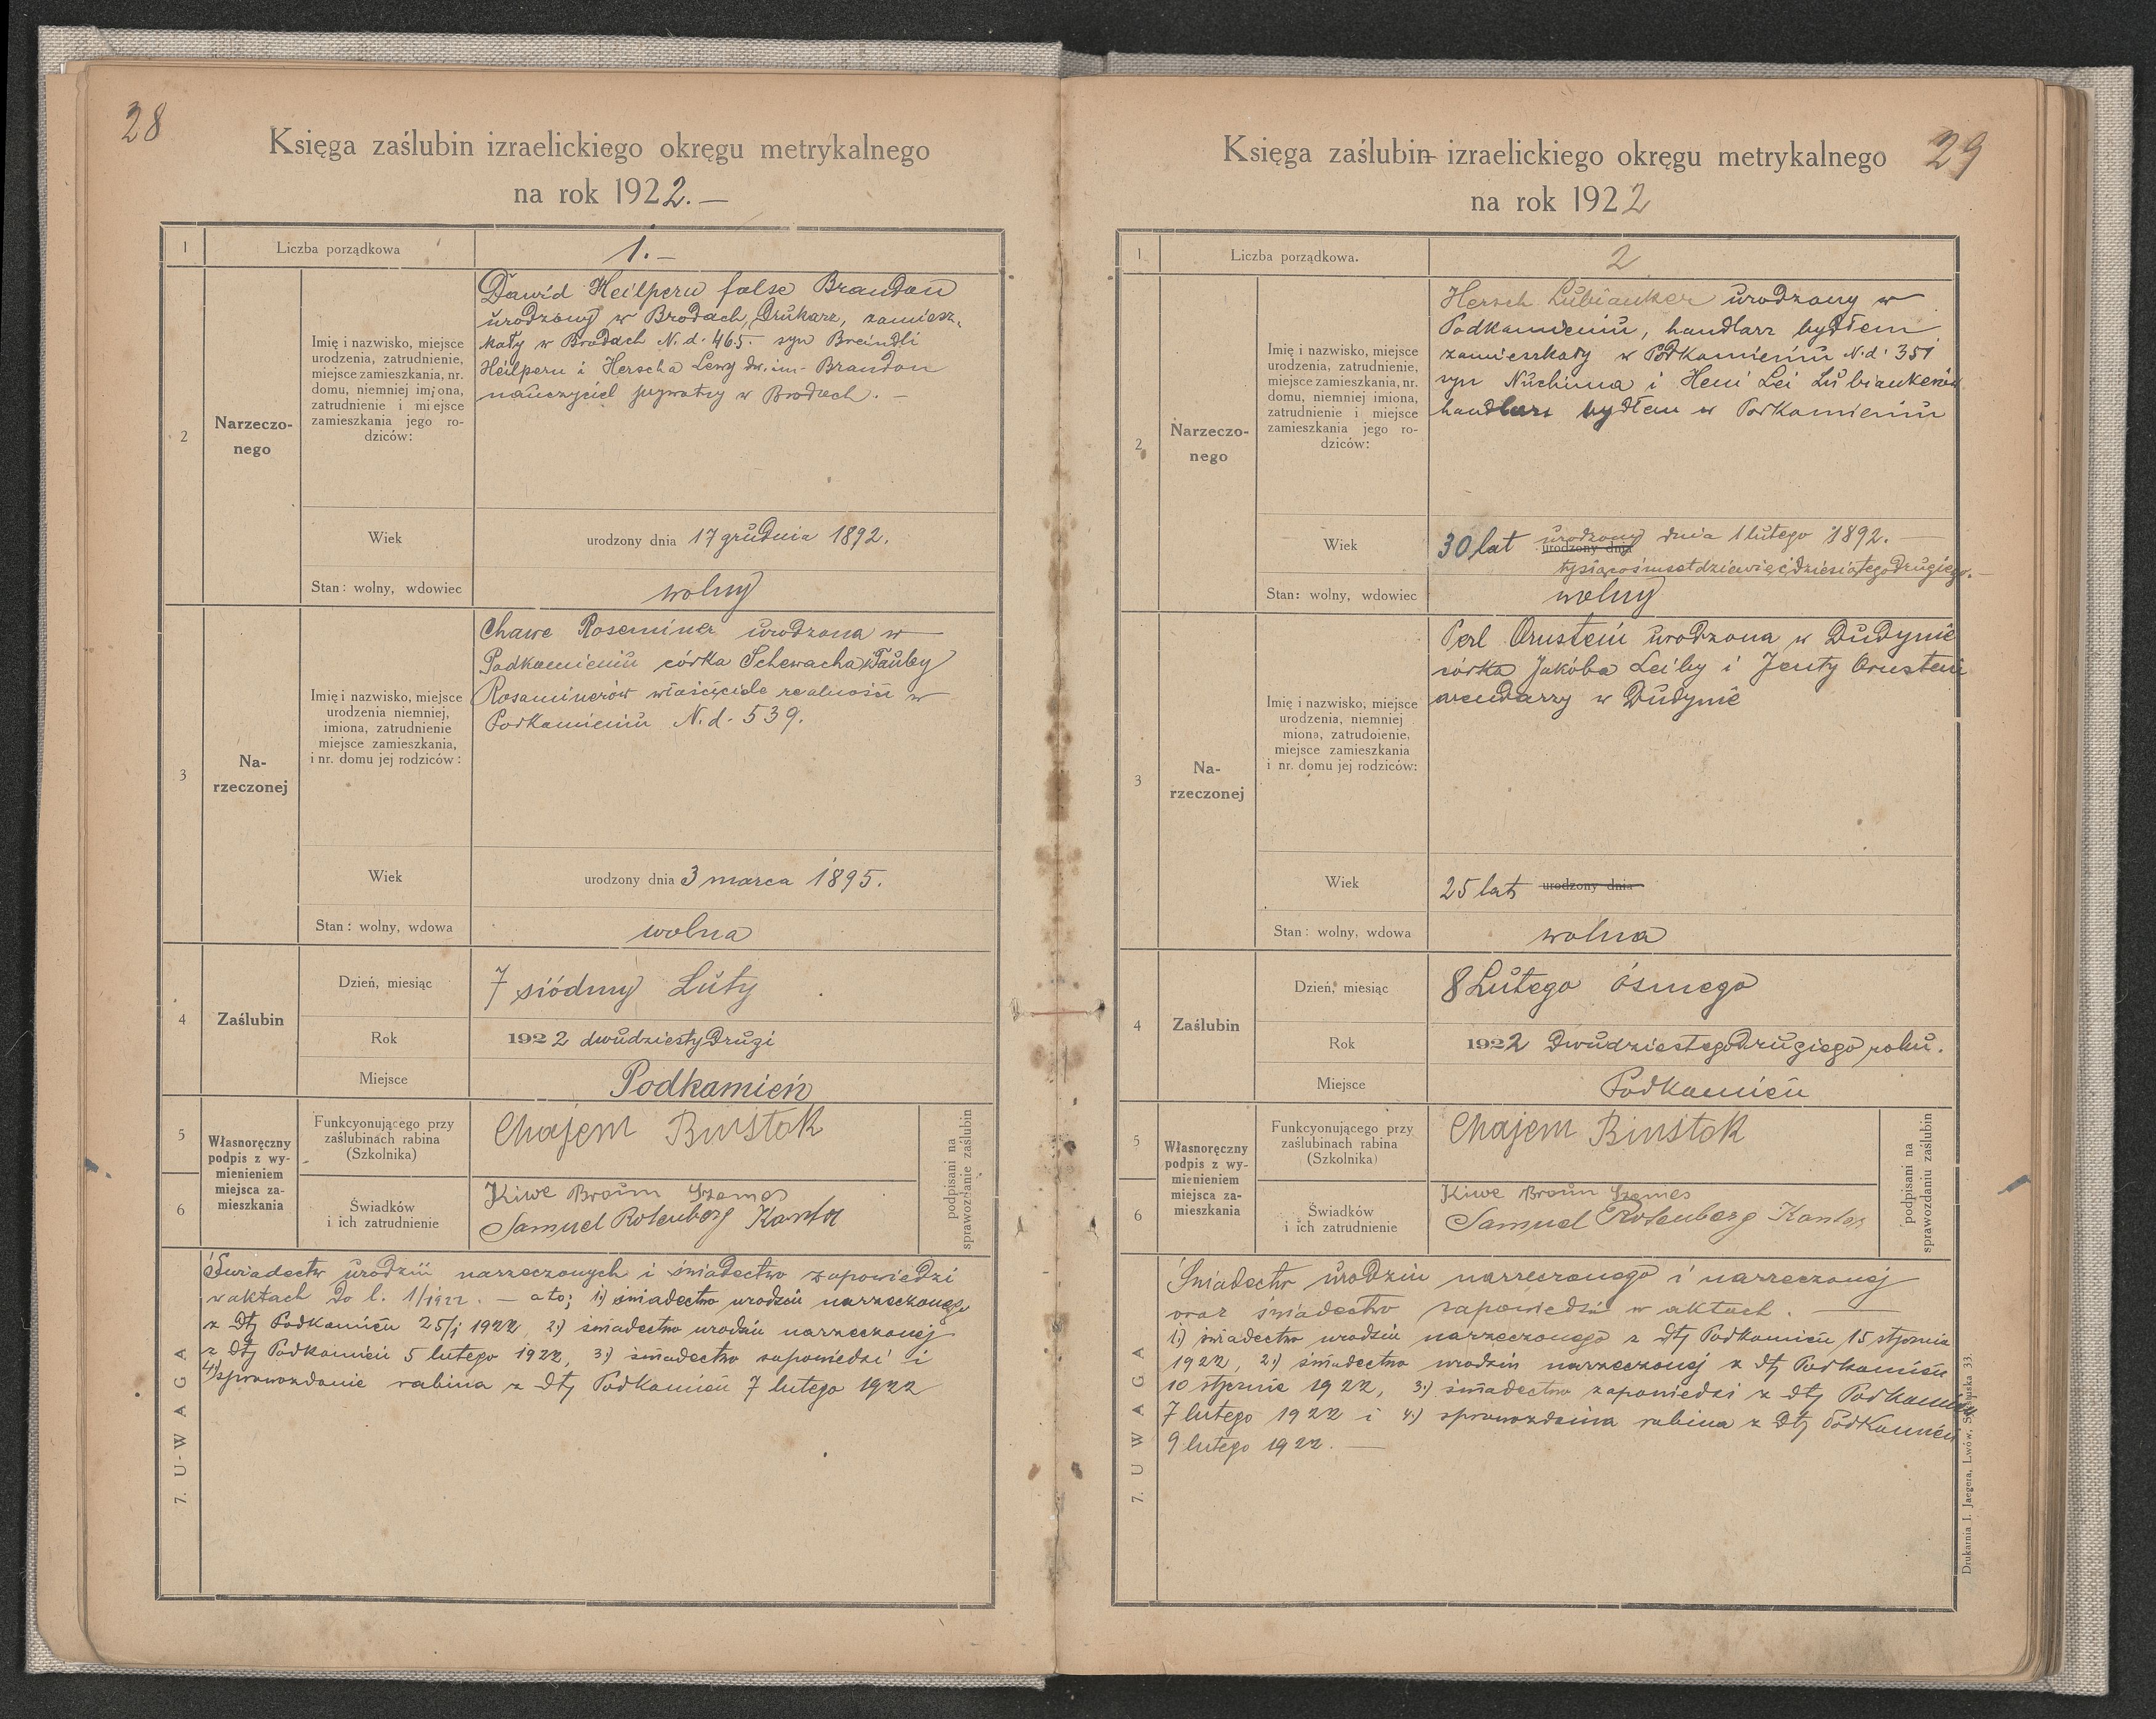 28
Księga zaślubin izraelickiego okręgu metrykalnego
na rok 1922. —
1
Liczba porządkowa
1. —
2
Narzeczo-
nego
Imię i nazwisko, miejsce
urodzenia, zatrudnienie,
miejsce zamieszkania, nr.
domu, niemniej imjona,
zatrudnienie i miejsce
zamieszkania jego ro-
dziców:
Dawid Heilpern false Brandon
urodzony w Brodach, Drukarz, zamiesz-
kały w Brodach N. d. 465. syn Breindli
Heilpern i Herscha Lewy dw. im. Brandon
nauczyciel prywatny w Brodach. —
Wiek
urodzony dnia 17 grudnia 1892.
Stan: wolny, wdowiec
wolny
3
Na-
rzeczonej
Imię i nazwisko, miejsce
urodzenia niemniej,
imiona, zatrudnienie
miejsce zamieszkania,
i nr. domu jej rodziców:
Chawe Roseminer urodzona w
Podkamieniu córka Schewacha i Tauby
Rosaminerów właściciele realności w
Podkamieniu N. d. 539.
Wiek
urodzony dnia 3 marca 1895.
Stan: wolny, wdowa
wolna
4
Zaślubin
Dzień, miesiąc
7 siódmy Luty
Rok
1922 dwudziesty Drugi
Miejsce
Podkamień
5
6
Własnoręczny
podpis z wy-
mienieniem
miejsca za-
mieszkania
Funkcyonującego przy
zaślubinach rabina
(Szkolnika)
Chajem Binstok
Świadków
i ich zatrudnienie
Kiwe Braun Szames
Samuel Rotenberg Kantor
podpisani na
sprawozdanie zaślubin
7. U W A G A
Świadectw urodzin narzeczonych i świadectwo zapowiedzi
w aktach Do l. 1/1922. — a to; 1) świadectwo urodzin narzeczonego
z dtj Podkamień 25/i 1922, 2) świadectwo urodzin narzeczonej
z dtj Podkamień 5 lutego 1922, 3) świadectwo zapowiedzi i
4) sprawozdanie rabina z dtj Podkamień 7 lutego 1922
29
Księga zaślubin izraelickiego okręgu metrykalnego
na rok 1922
1
Liczba porządkowa.
2
2
Narzeczo-
nego
Imię i nazwisko, miejsce
urodzenia, zatrudnienie,
miejsce zamieszkania, nr.
domu, niemniej imiona,
zatrudnienie i miejsce
zamieszkania jego ro-
dziców:
Hersch Lubianker urodzony w
Podkamieniu, handlarz bydłem
zamieszkały w Podkamieniu N. d. 351
syn Nuchima i Heni Lei Lubiankerów
handlarz bydłem w Podkamieniu
Wiek
30 lat urodzony dnia 1 lutego 1892. —
urodzony dnia
tysiącośmsetdziewięćdziesiątego Drugiego. —
Stan: wolny, wdowiec
wolny
3
Na-
rzeczonej
Imię i nazwisko, miejsce
urodzenia, niemniej
miona, zatrudoienie,
miejsce zamieszkania
i nr. domu jej rodziców:
Perl Ornstein urodzona w Dudynie
córka Jakóba Leiby i Jenty Ornstein
arendarzy w Dudynie
Wiek
25 lat urodzony dnia
Stan: wolny, wdowa
wolna
4
Zaślubin
Dzień, miesiąc
8 Lutego ósmego
Rok
1922 Dwudziestego Drugiego roku.
Miejsce
Podkamień
5
6
Własnoręczny
podpis z wy-
mienieniem
miejsca za-
mieszkania
Funkcyonującego przy
zaślubinach rabina
(Szkolnika)
Chajem Binstok
Świadków
i ich zatrudnienie
Kiwe Braun Szames
Samuel Rotenberg Kantor
podpisani na
sprawozdaniu zaślubin
7. U W A G A
Świadectw urodzin narzeczonego i narzeczonej
oraz świadectwo zapowiedzi w aktach. —
1) świadectwo urodzin narzeczonego z dtj Podkamień 15 stycznia
1922, 2) świadectwo urodzin narzeczonej z dtj Podkamień
10 stycznia 1922, 3) świadectwo zapowiedzi z dtj Podkamień
7 lutego 1922 i 4) sprawozdania rabina z dtj Podkamień
9 lutego 1922. —
Drukarnia I. Jaegera, Lwów, Sykstuska 33.